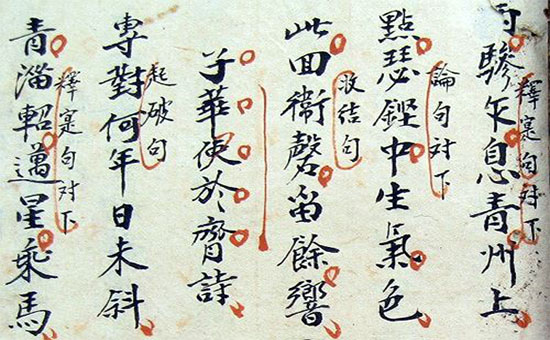 釋寔句對下
驂乍息青州上
論句對下
點瑟鏗中生氣色
收結句
此回衛磬留餘響
子華使於齊詩
起破句
專對何年日未斜
釋寔句對下
青淄軺邁星乘馬